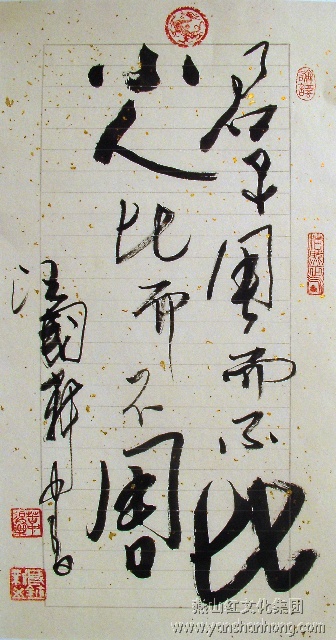 君子周而不比
小人比而不周
汪國新
燕山红文化集团
www.yanshanhong.com